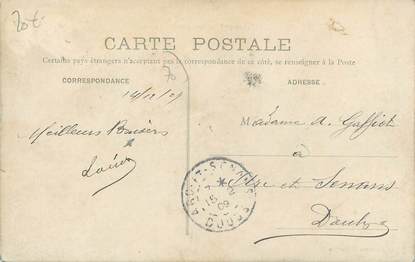 20t
CARTE POSTALE
Certains pays étrangers n'acceptant pas la correspondance de ce côté, se renseigner à la Poste
CORRESPONDANCE
ADRESSE
14/12/09
Meilleurs Baisers
Madame A. Gaffiot
à
et Senans
Doubs
DOUBS